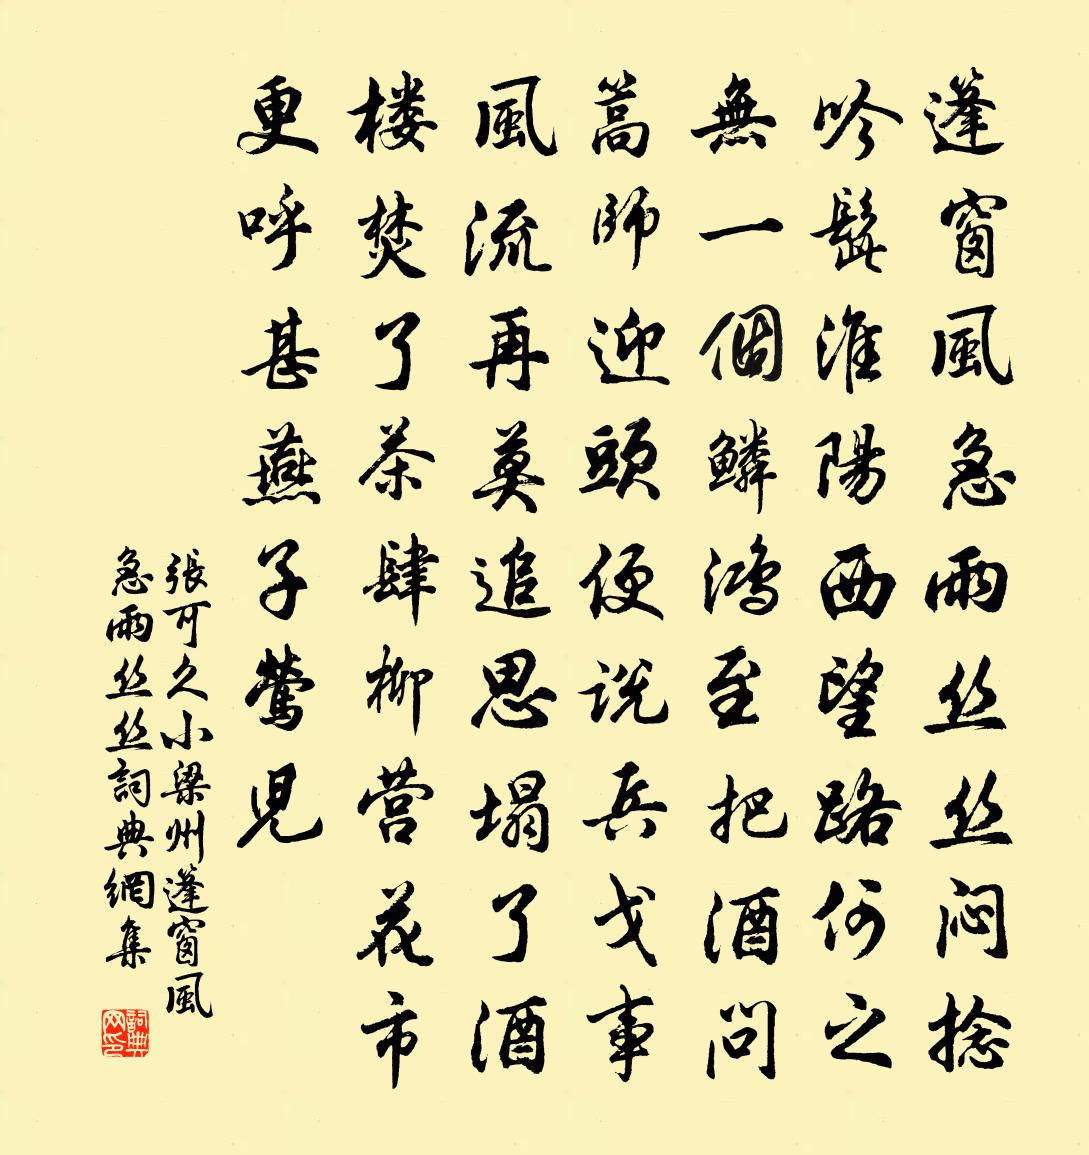 篷窗風急雨丝丝闷捻
吟髭淮陽西望路何之
無一個鱗鴻至把酒問
篙師迎頭便说兵戈事
風流再莫追思塌了酒
楼焚了茶肆柳营花市
更呼甚燕子鶯児
張可久小梁州篷窗風
急雨丝丝詞典網集
詞典
网印